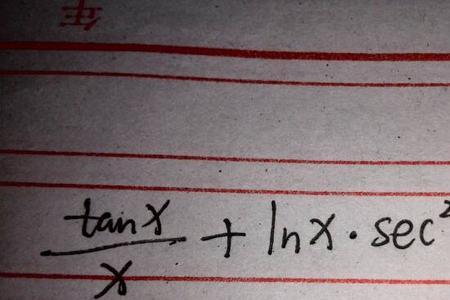 tan x / x + ln x · sec²